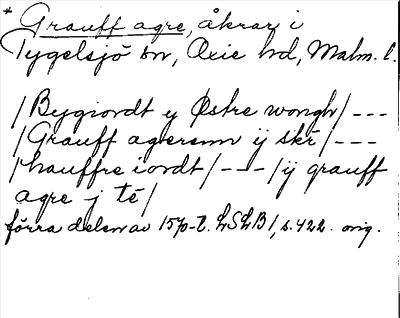 * Grauff agre, åkrar, i
Tygelsjö sn, Oxie hd, Malm. l.
/Bygiordt y Østre wongh/ ---
/Grauff agerenn ÿ skr/ ---
/hauffre iordt/ --- /ÿ grauff
agre j té/
förra delen av 1570-t. LSLB 1, s. 422. orig.